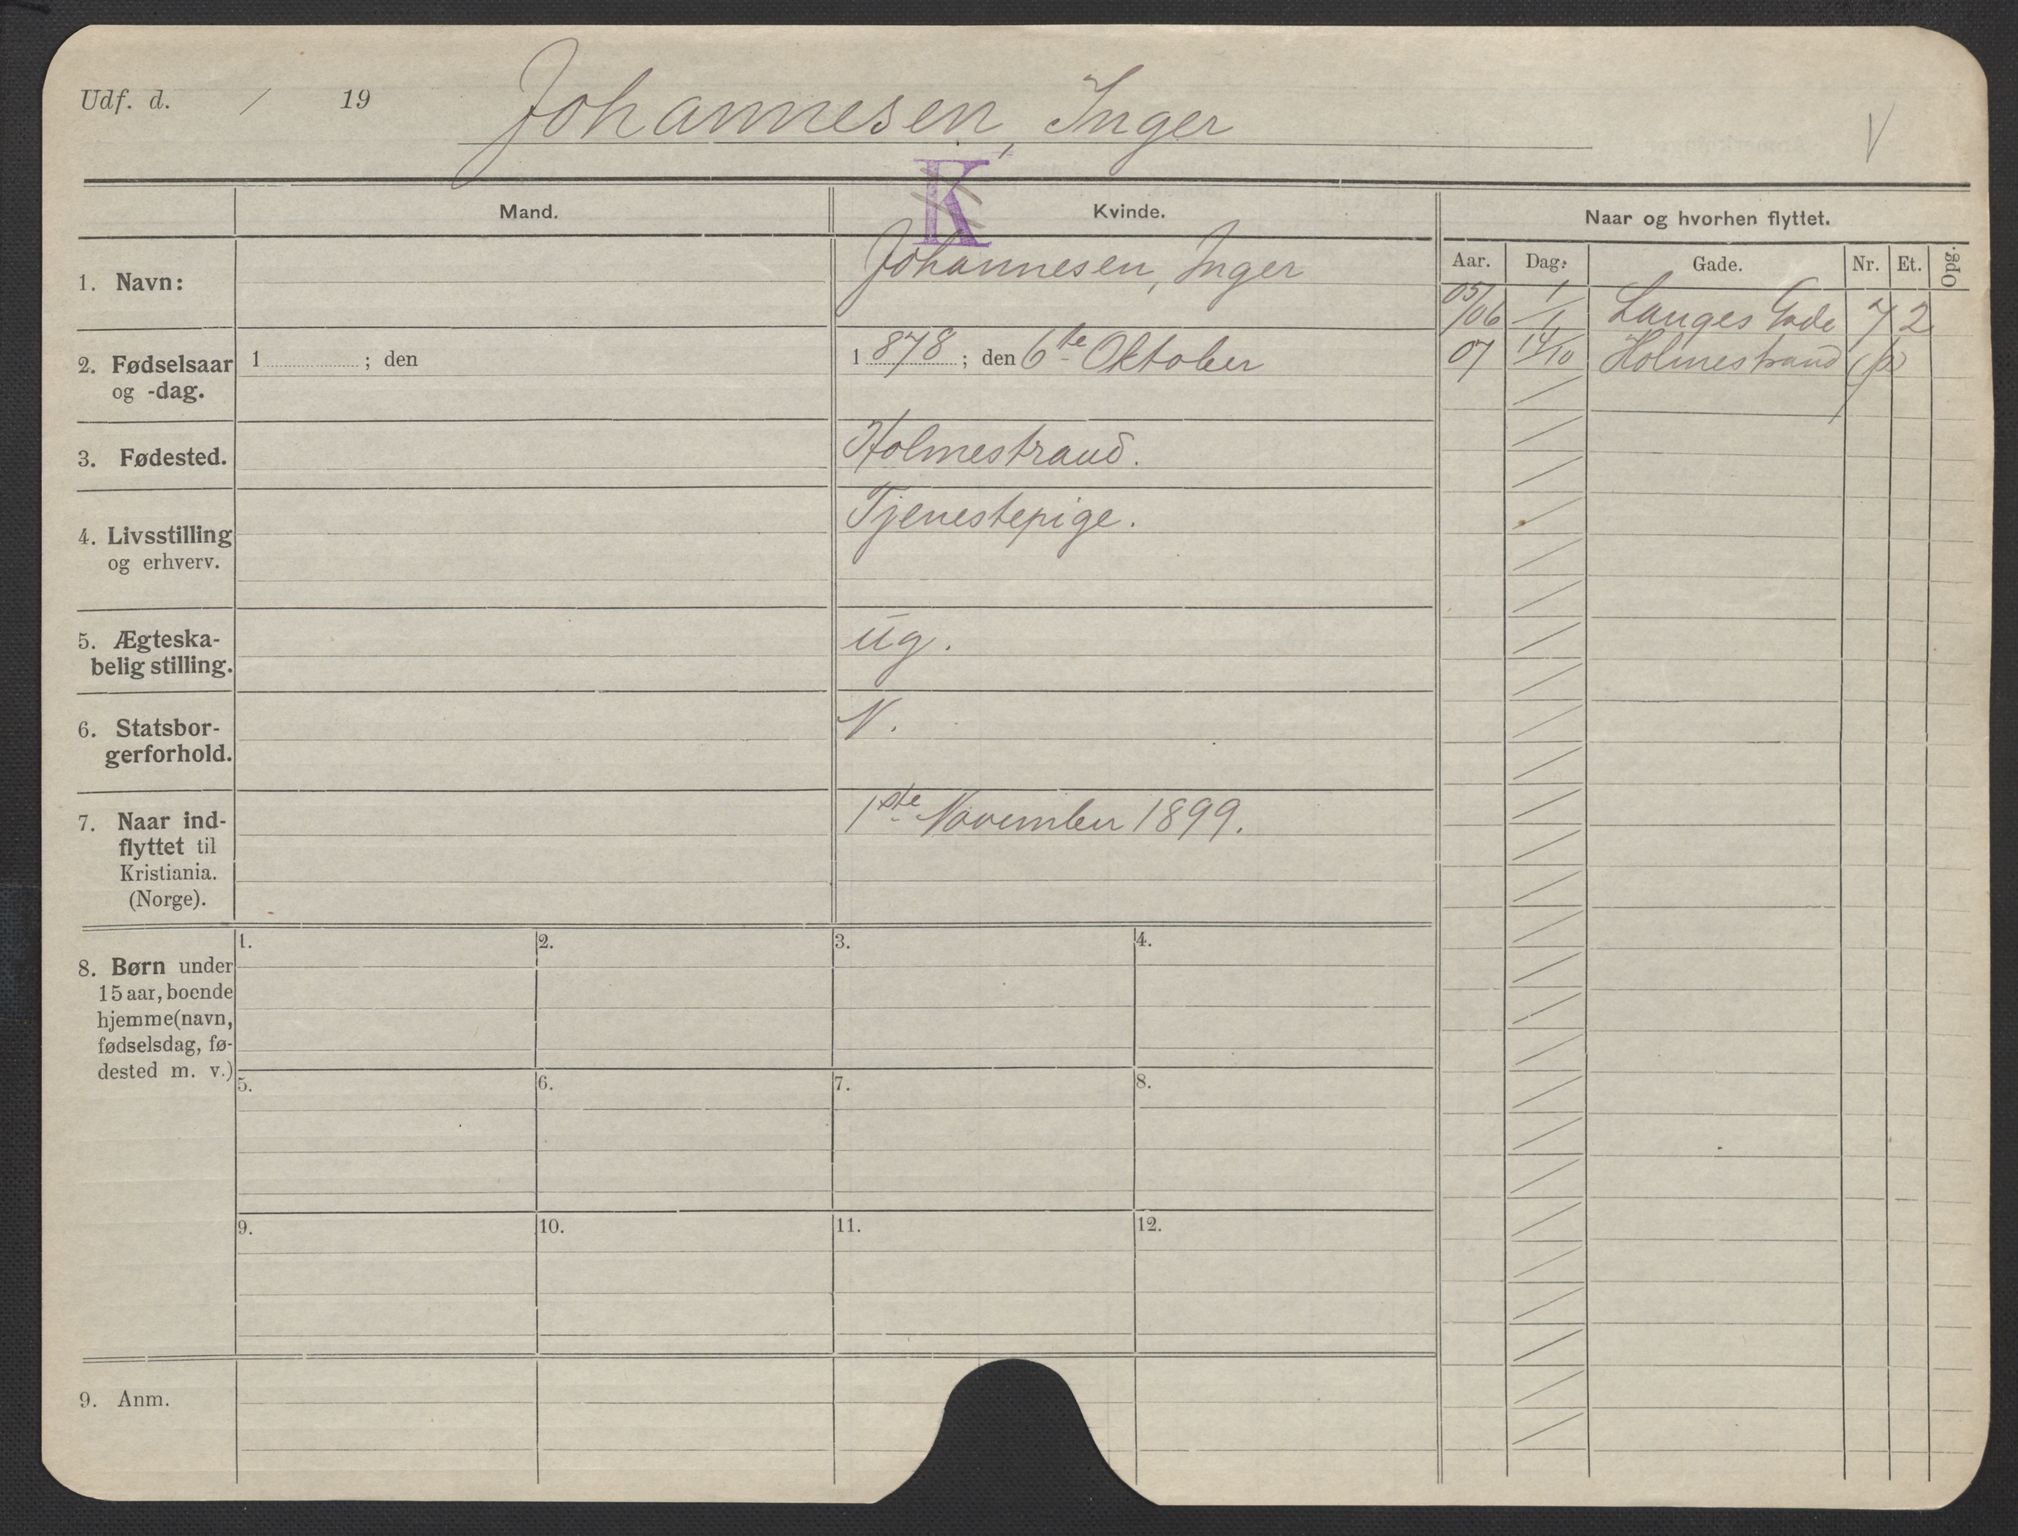 Udf. d. / 19 Johannesen, Inger V
K
Mand. Kvinde. Naar og hvorhen flyttet.
Aar. Dag. Gade. Nr. Et. Opg.
1. Navn: Johannesen, Inger
05/06 1/1 Langes Gade 7 2
2. Fødselsaar og -dag. 1 ; den 1 878 ; den 6te Oktober
07 14/10 Holmestrand
3. Fødested. Holmestrand.
4. Livsstilling og erhverv. Tjenestepige.
5. Ægteska-
belig stilling. ug.
6. Statsbor-
gerforhold. N.
7. Naar ind-
flyttet til
Kristiania.
(Norge). 1ste November 1899.
8. Børn under
15 aar, boende
hjemme (navn,
fødselsdag, fø-
dested m. v.)
1. 2. 3. 4.
5. 6. 7. 8.
9. 10. 11. 12.
9. Anm.